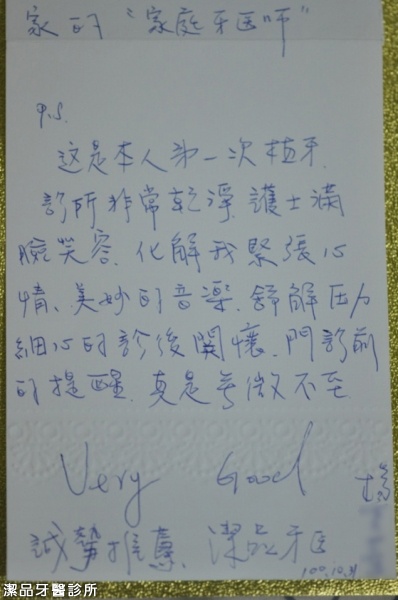 家的"家庭牙医师"
P.S.
这是本人第一次植牙.
診所非常乾淨.護士滿
臉笑容、化解我緊張心
情、美妙的音樂.舒解压力
細心的診後関懷.門診前
的提醒.真是無微不至
Very Good
誠摯推薦 潔品牙医
100.10.
潔品牙醫診所